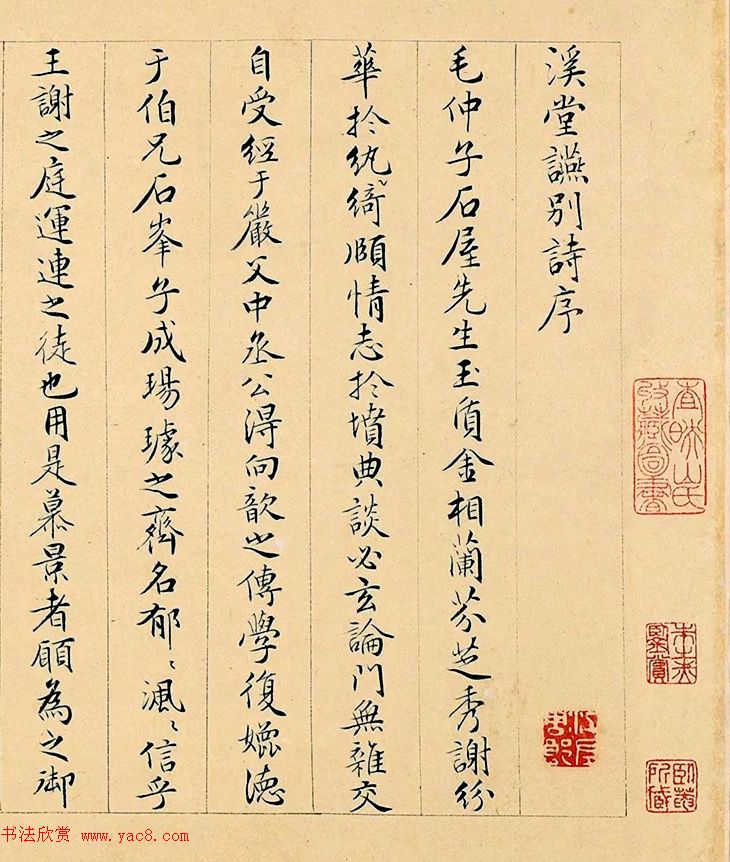 溪堂讌別詩序
毛仲子石屋先生玉質金相蘭芬芝秀謝紛
華於紈綺頤情志於墳典談必玄論門無雜交
自受經于嚴父中丞公得向歆之傳學復孅德
于伯兄石峯子成瑒璩之齊名郁〻渢〻信乎
王謝之庭運連之徒也用是慕景者願為之御
书法欣赏 www.yac8.com